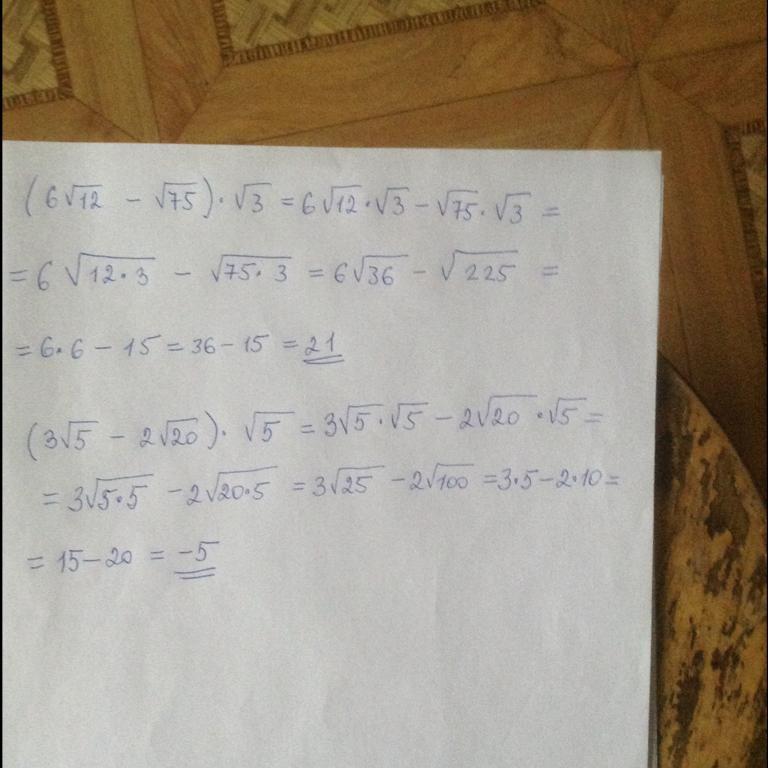 (6√12 - √75)·√3 = 6√12·√3 - √75·√3 =
= 6√12·3 - √75·3 = 6√36 - √225 =
= 6·6 - 15 = 36 - 15 = 21
(3√5 - 2√20)·√5 = 3√5·√5 - 2√20·√5 =
= 3√5·5 - 2√20·5 = 3√25 - 2√100 = 3·5 - 2·10 =
= 15 - 20 = -5